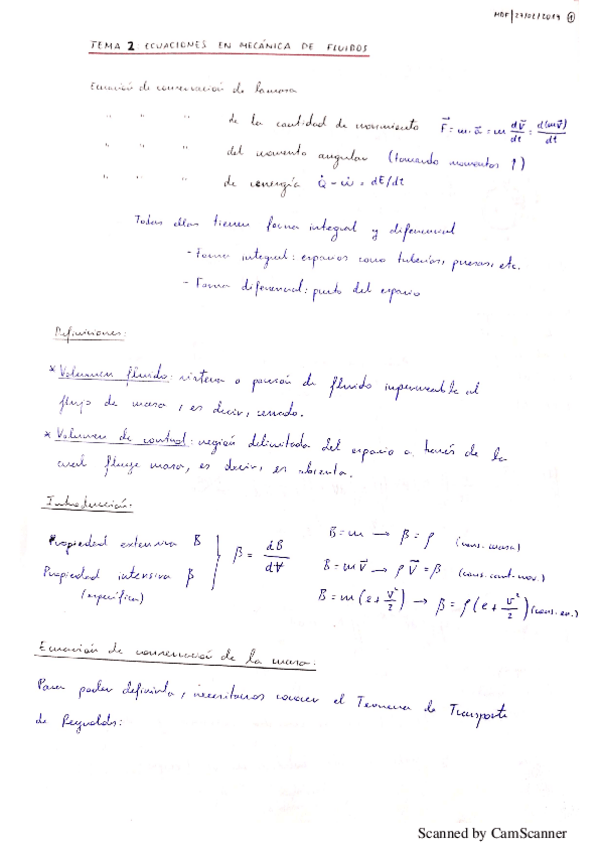 MDF | 27/02/2019 ①
TEMA 2 ECUACIONES EN MECÁNICA DE FLUIDOS
Ecuación de conservación de la masa
" " " de la cantidad de movimiento F⃗ = m·a⃗ = m dV⃗/dt = d(mV⃗)/dt
" " " del momento angular (tomando momentos ↑)
" " " de energía Q̇ - Ẇ = dE/dt
Todas ellas tienen forma integral y diferencial
- Forma integral: espacios como tuberías, presas, etc.
- Forma diferencial: punto del espacio
Definiciones:
* Volumen fluido: sistema o porción de fluido impermeable al
flujo de masa, es decir, cerrado.
* Volumen de control: región delimitada del espacio a través de la
cual fluye masa, es decir, es abierta.
Introducción:
Propiedad extensiva B
Propiedad intensiva β
(específica)
β = dB/dV
B = m → β = ρ (cons. masa)
B = mV⃗ → ρV⃗ = β (cons. cant. mov.)
B = m(e + V²/2) → β = ρ(e + V²/2) (cons. en.)
Ecuación de conservación de la masa:
Para poder definirla, necesitamos conocer el Teorema de Transporte
de Reynolds:
Scanned by CamScanner